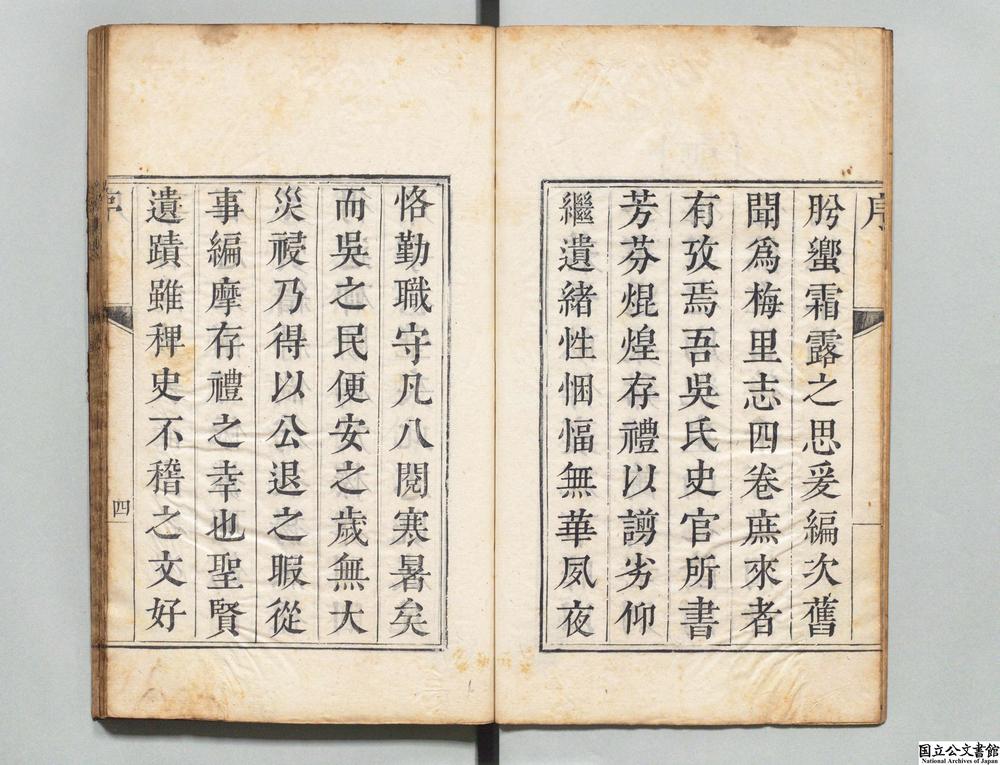 序
肸蠁霜露之思爰編次舊
聞爲梅里志四卷庶來者
有攷焉吾吳氏史官所書
芳芬焜煌存禮以謭劣仰
繼遺緒性悃愊無華夙夜
恪勤職守凡八閱寒暑矣
而吳之民便安之歲無大
災祲乃得以公退之暇從
事編摩存禮之幸也聖賢
遺蹟雖稗史不稽之文好
序
四
国立公文書館
National Archives of Japan